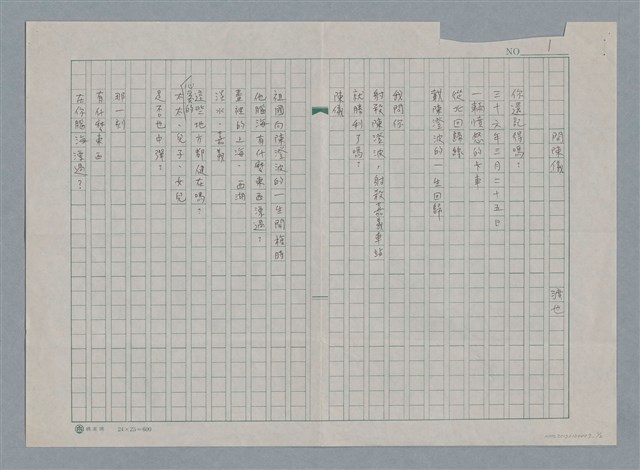 NO 1
問陳儀
渡也
你還記得嗎?
三十六年三月二十五日
一輛憤怒的卡車
從北回歸線
載陳澄波的一生回歸
我問你
射殺陳澄波,射殺嘉義車站
就勝利了嗎?
陳儀
祖國向陳澄波的一生開槍時
他腦海有什麼東西漂過?
畫裡的上海、西湖
淡水、嘉義
這些地方都健在嗎?
心愛的太太、兒子、女兒
是否也中彈?
那一刻
有什麼東西
在你腦海漂過?
24×25=600